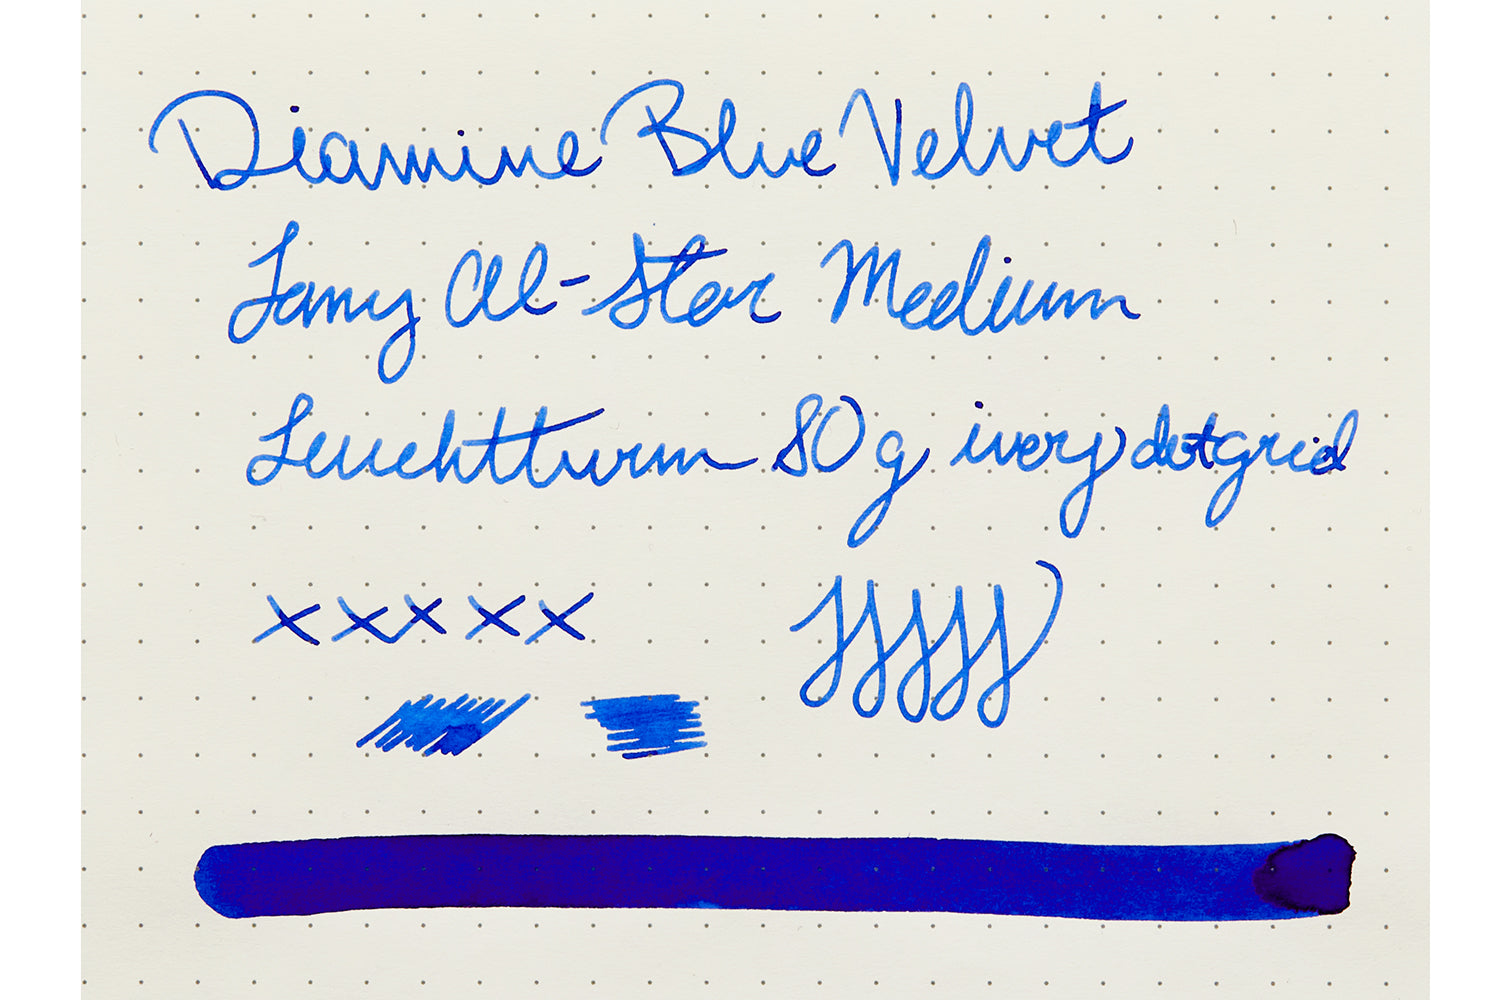 Diamine Blue Velvet
Lamy Al-Star Medium
Leuchtturm 80g ivory dot grid
x x x x x